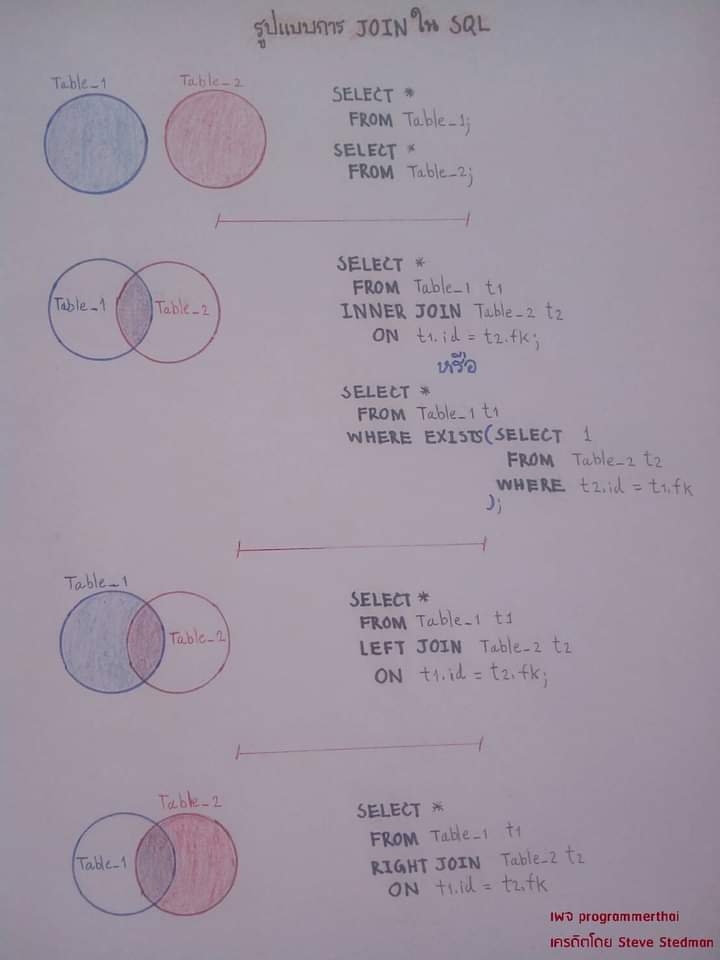 รูปแบบการ JOIN ใน SQL
Table_1 Table_2
SELECT *
FROM Table_1;
SELECT *
FROM Table_2;
Table_1 Table_2
SELECT *
FROM Table_1 t1
INNER JOIN Table_2 t2
ON t1.id = t2.fk;
หรือ
SELECT *
FROM Table_1 t1
WHERE EXISTS(SELECT 1
FROM Table_2 t2
WHERE t2.id = t1.fk
);
Table_1
Table_2
SELECT *
FROM Table_1 t1
LEFT JOIN Table_2 t2
ON t1.id = t2.fk;
Table_2
Table_1
SELECT *
FROM Table_1 t1
RIGHT JOIN Table_2 t2
ON t1.id = t2.fk
เพจ programmerthai
เครดิตโดย Steve Stedman